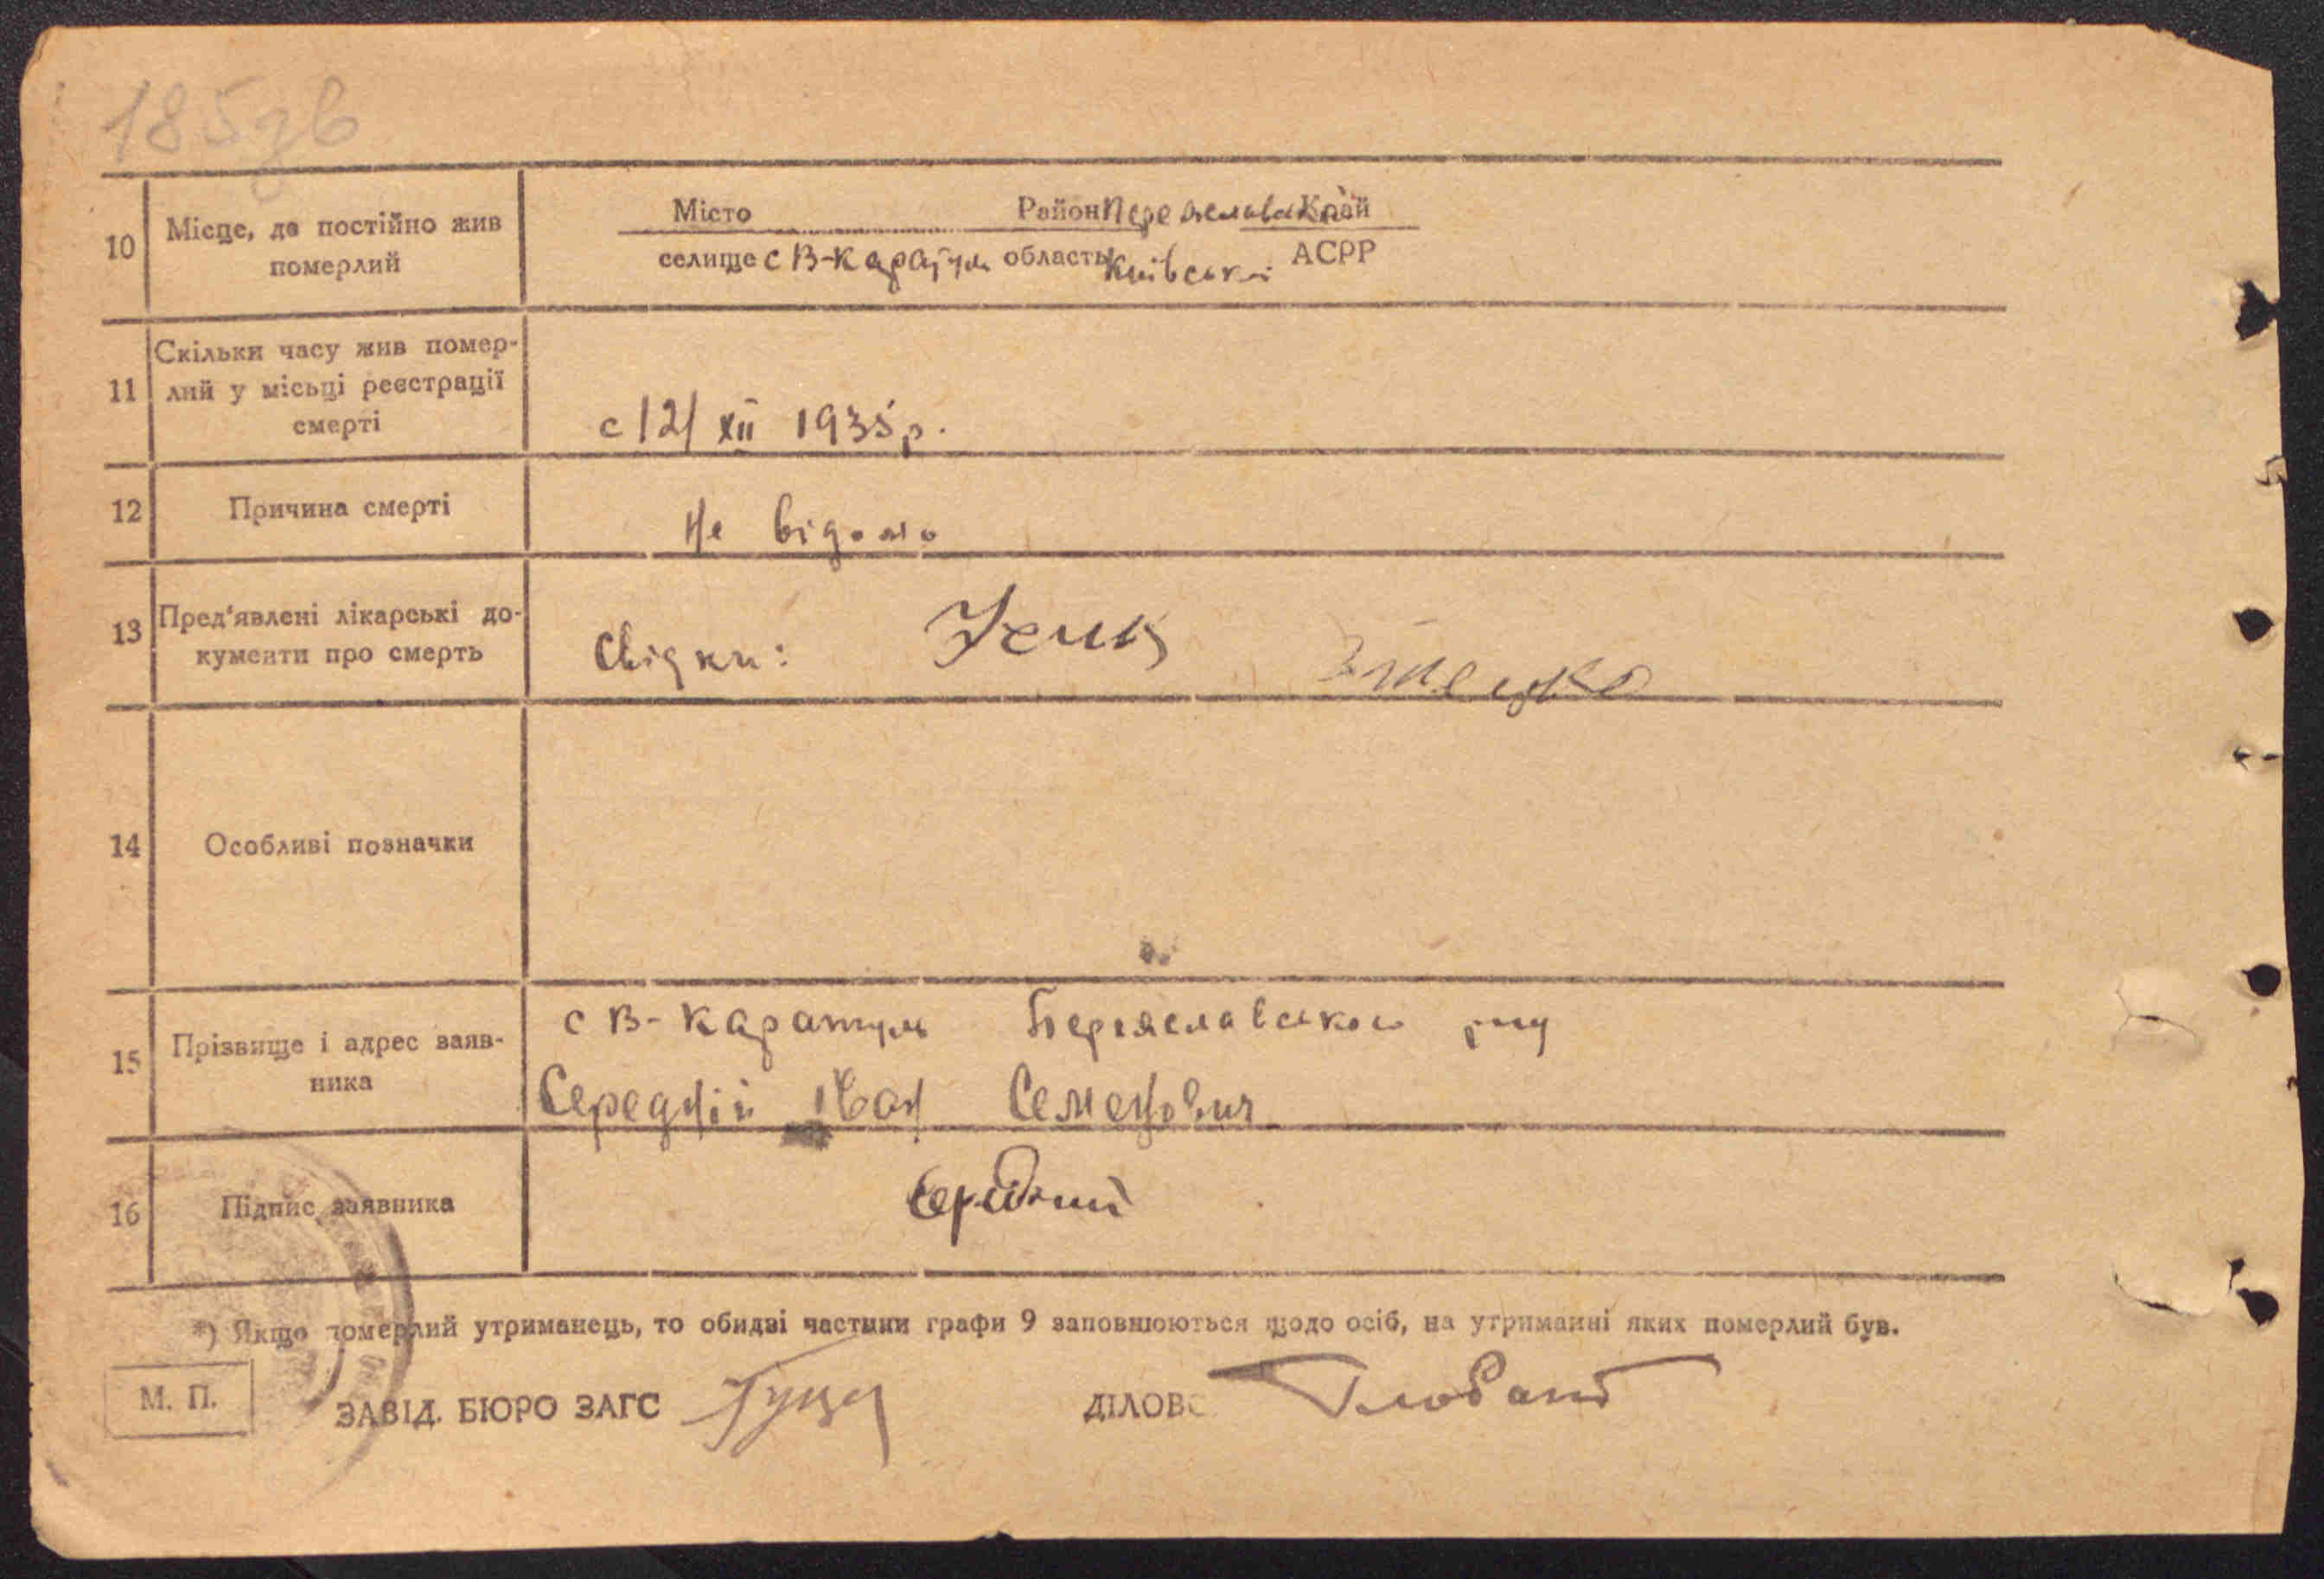 185зв
10 Місце, де постійно жив померлий
Місто Район Переяславськ Край
селище с В-Каратуль область Київської АСРР
11 Скільки часу жив помер-
лий у місьці реєстрації
смерті
с 12/ XII 1935 р.
12 Причина смерті Не відомо
13 Пред'явлені лікарські до-
кументи про смерть
Свідки:
14 Особливі позначки
15 Прізвище і адрес заяв-
ника
с В-Каратуль Переяславського р-ну
Середній Іван Семенович
16 Підпис заявника Середний
*) Якщо померлий утриманець, то обидві частини графи 9 заповнюються щодо осіб, на утриманні яких померлий був.
М. П. ЗАВІД. БЮРО ЗАГС ДІЛОВ